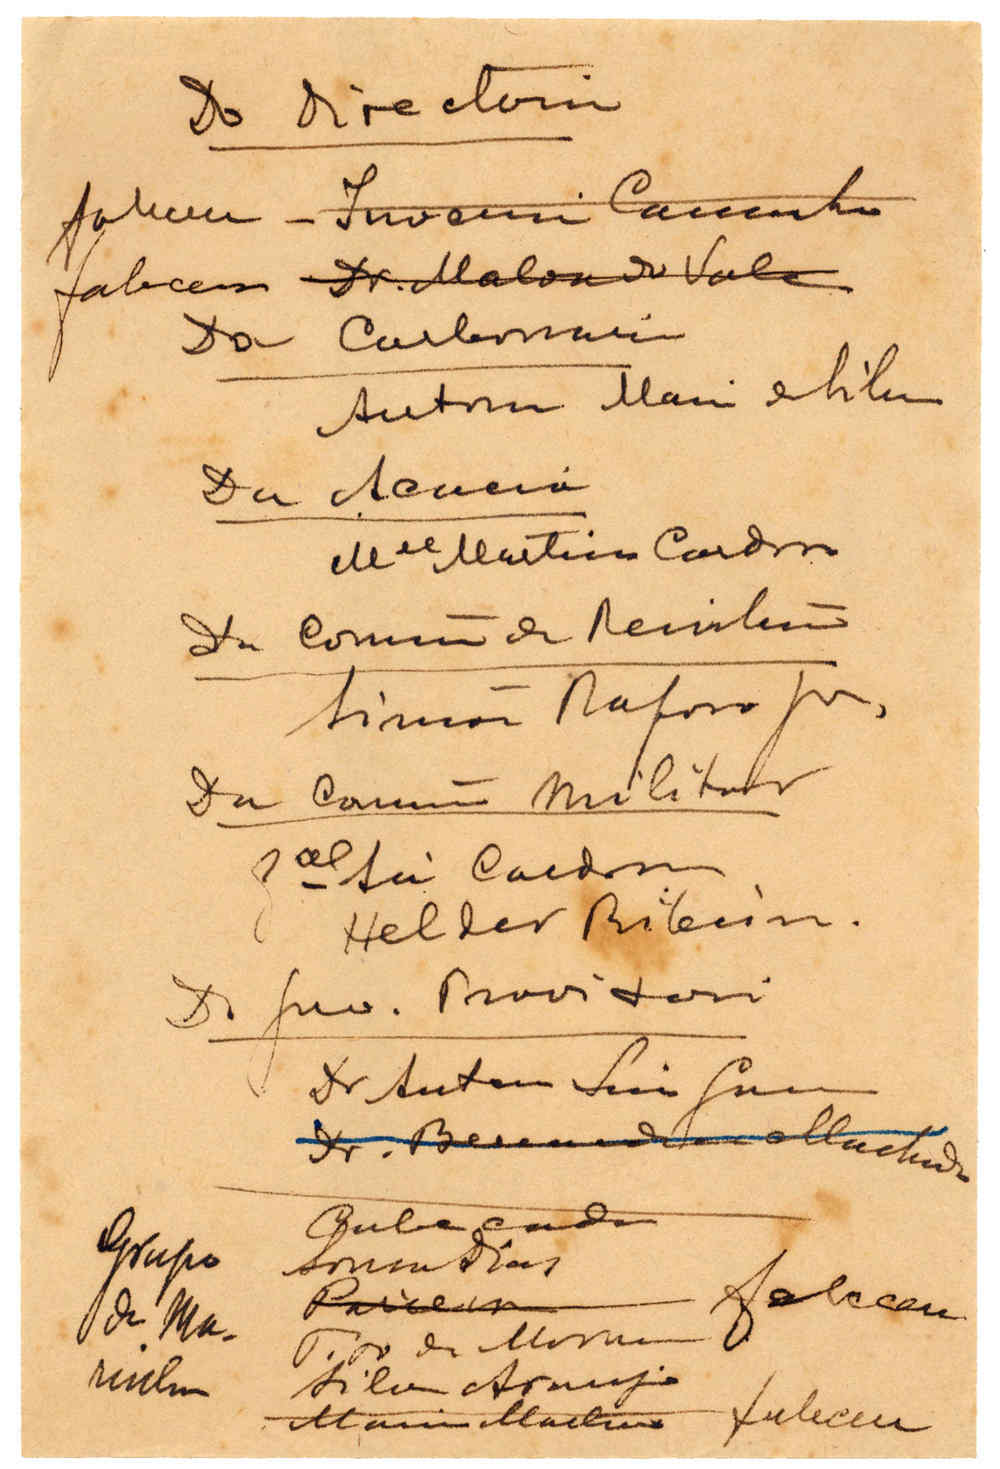 Do Directorio
faleceu - Inocencio Camacho
faleceu Dr. Malva do Vale
Da Carbonaria
Antonio Maria da Silva
Da Acacia
Mel Martins Cardoso
Da Comão de Resistencia
Simões Raposo Jor,
Da Comão Militar
Gal Sá Cardoso
Helder Ribeiro.
Do Gov. Provisorio
Dr Antonio Luis Gomes
Dr. Bernardino Machado
Grupo de Marinha
Cabeçadas
Sousa Dias
Parreira faleceu
Tito de Moraes
Silva Araujo
Maria Martins faleceu